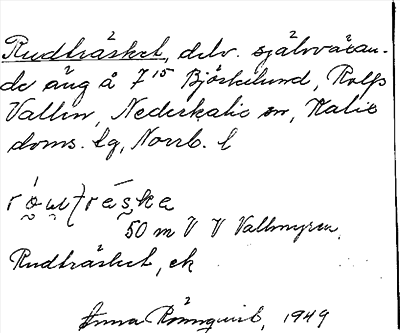 Rudträsket, delv. självväxan-
de äng å 7¹⁵ Björkelund, Rolfs
Vallen, Nederkalix sn, Kalix
doms. lg, Norrb. l
50 m V V Vallmyren.
Rudträsket, ek
Anna Rönnqvist, 1949